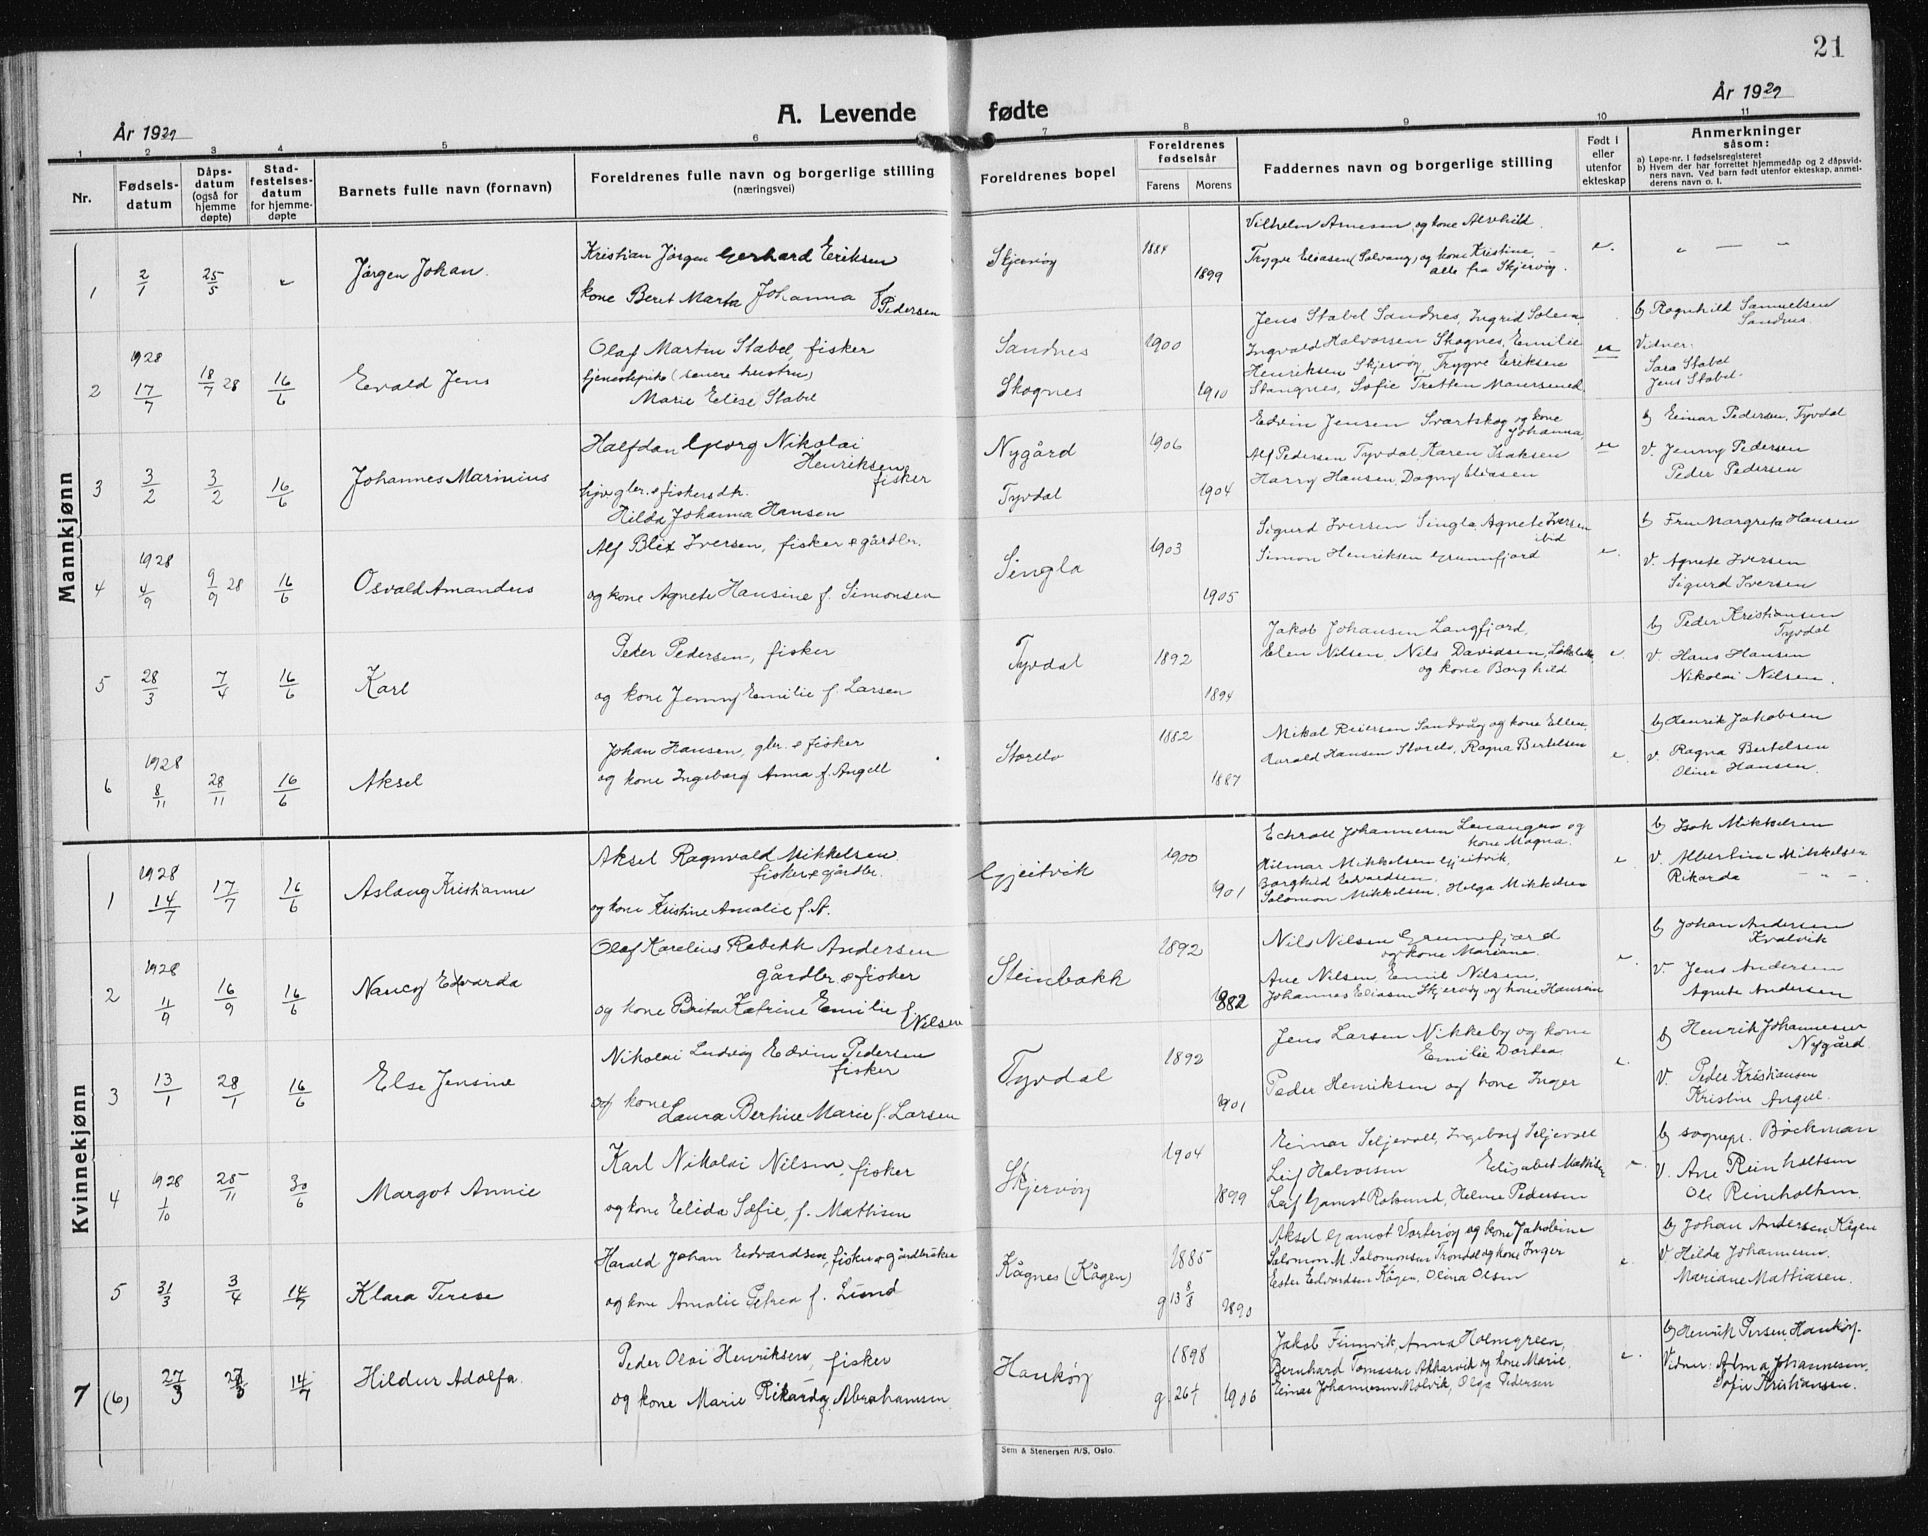 21
År 1929
A. Levende fødte
År 1929
1 2 3 4 5 6 7 8 9 10 11
Nr.
Fødsels-
datum
Dåps-
datum
(også for
hjemme
døpte)
Stad-
festelses-
datum
for hjemme-
døpte
Barnets fulle navn (fornavn)
Foreldrenes fulle navn og borgerlige stilling
(næringsvei)
Foreldrenes bopel
Foreldrenes
fødselsår
Farens Morens
Faddernes navn og borgerlige stilling
Født i
eller
utenfor
ekteskap
Anmerkninger
såsom:
a) Løpe-nr. i fødselsregisteret
b) Hvem der har forrettet hjemmedåp og 2 dåpsvid-
ners navn. Ved barn født utenfor ekteskap, anmel-
derens navn o. l.
Mannkjønn
1 2/1 25/5 Jørgen Johan.
Kristian Jørgen Gerhard Eriksen
kone Beret Marta Johanna f. Pedersen
Skjervøy 1884 1899
Vilhelm Arnesen og kone Alvhild.
Trygve Eliasen (Solvang) og kone Kristine,
alle fra Skjervøy.
e. " — "
2 1928 17/7 18/7 28 16/6 Evald Jens
Olaf Martin Stabel, fisker
tjenestepike (senere hustru)
Marie Elise Stabel
Sandnes
Skognes
1900 1910
Jens Stabel Sandnes, Ingrid Solem,
Ingvald Halvorsen Skognes, Emilie
Henriksen Skjervøy, Trygve Eriksen
Stangnes, Sofie Tretten Maursund.
eu
b) Ragnhild Samuelsen
Sandnes.
Vidner:
Sara Stabel
Jens Stabel.
3 3/2 3/2 16/6 Johannes Marinius
Halfdan Georg Nikolai
Henriksen
fisker
gbr. & fiskers dtr.
Hilda Johanna Hansen
Nygård
Tyvdal
1906 1904
Edvin Jensen Svartskog og kone
Johanna,
Alf Pedersen Tyvdal Karen Isaksen
Harry Hansen, Dagny Eliasen
eu
b) Einar Pedersen, Tyvdal
V. Jenny Pedersen
Peder Pedersen
4 1928 4/9 9/9 28 16/6 Osvald Amandus
Alf Blix Iversen, fisker & gårdbr.
og kone Agnete Hansine f. Simonsen
Singla 1903 1905
Sigurd Iversen Singla, Agnete Iversen
ibid
Simon Henriksen Grunnfjord
e.
b) Fru Margreta Hansen
V. Agnete Iversen
Sigurd Iversen
5 28/3 7/4 16/6 Karl
Peder Pedersen, fisker
og kone Jenny Emilie f. Larsen
Tyvdal 1892 1894
Jakob Johansen Langfjord,
Elen Nilsen, Nils Davidsen,
og kone Borghild
e.
b) Peder Kristiansen
Tyvdal
V. Hans Hansen
Nikolai Nilsen.
6 1928 8/11 28/11 16/6 Aksel
Johan Hansen, gbr. & fisker
og kone Ingeborg Anna f. Angell
Storelv 1882 1887
Mikal Reiersen Sandvåg og kone Ellen,
Harald Hansen Storelv, Ragna Bertelsen
e.
b) Henrik Jakobsen
V. Ragna Bertelsen
Oline Hansen.
Kvinnekjønn
1 1928 14/7 17/7 16/6 Aslaug Kristianne
Aksel Ragnvald Mikkelsen
fisker & gårdbr.
og kone Kristine Amalie f. A.
Gjeitvik 1900 1901
Johannesen Lenangen og
kone Magna.
Hilmar Mikkelsen Gjeitvik,
Borghild Edvardsen,
Salomon Mikkelsen, Helga Mikkelsen
e
b) Isak Mikkelsen
V. Albertine Mikkelsen
Rikarda — " —
2 1928 11/9 16/9 16/6 Nancy Edvarda
Olaf Karelius Rebekk Andersen
gårdbr. & fisker
og kone Brita Katrine Emilie f. Nilsen
Steinbakk 1892 1882
Nils Nilsen Grunnfjord
og kone Mariane
Ane Nilsen, Emil Nilsen,
Johannes Eliasen Skjervøy og kone Hansine
e.
b) Johan Andersen
Kvalvik
V. Jens Andersen
Agnete Andersen
3 13/1 28/1 16/6 Else Jensine
Nikolai Ludvig Edvin Pedersen
fisker
og kone
Laura Bertine Marie f. Larsen
Tyvdal 1892 1901
Jens Larsen Nikkeby og kone
Emilie Dortea
Peder Henriksen og kone Inger
e.
b) Henrik Johannesen
Nygård
V. Peder Kristiansen
Kristin Angell.
4 1928 1/10 25/11 30/6 Margot Annie
Karl Nikolai Nilsen fisker
og kone Elida Sofie, f. Mattisen
Skjervøy 1904 1899
Einar Seljevoll, Ingeborg Seljevoll
Leif Halvorsen Elisabet Mattisen
Leif Gamst Rotsund, Helene Pedersen
e.
b) sognepr. Bøckman
V. Ane Reinholtsen
Ole Reinholtsen.
5 31/3 3/4 14/7 Klara Terese
Harald Johan Edvardsen, fisker & gårdbruker
og kone Amalie Petrea f. Lund
Kågnes (Kågen) 1885 g. 13 8/8 1890
Aksel Gamst Vorterøy og kone Jakobine
Salomon M. Salomonsen Trondal og kone Inger
Ester Edvardsen Kågen, Olina Olsen
e.
b) Johan Andersen Kågen
V. Hilda Johannesen.
Mariane Mattiasen.
7 (6) 27/3 14/7 Hildur Adolfa.
Peder Olai Henriksen, fisker
og kone Marie Rikarda f. Abrahamsen.
Haukøy 1898 1906
Jakob Finnvik, Anna Holmgreen,
Bernhard Tomassen Akkarvik og kone Marie,
Einar Johannesen Molvik, Olga Pedersen
e.
b) Henrik Persen Haukøy.
Vidner: Alma Johannesen.
Sofie Kristiansen.
Sem & Stenersen A/S, Oslo.